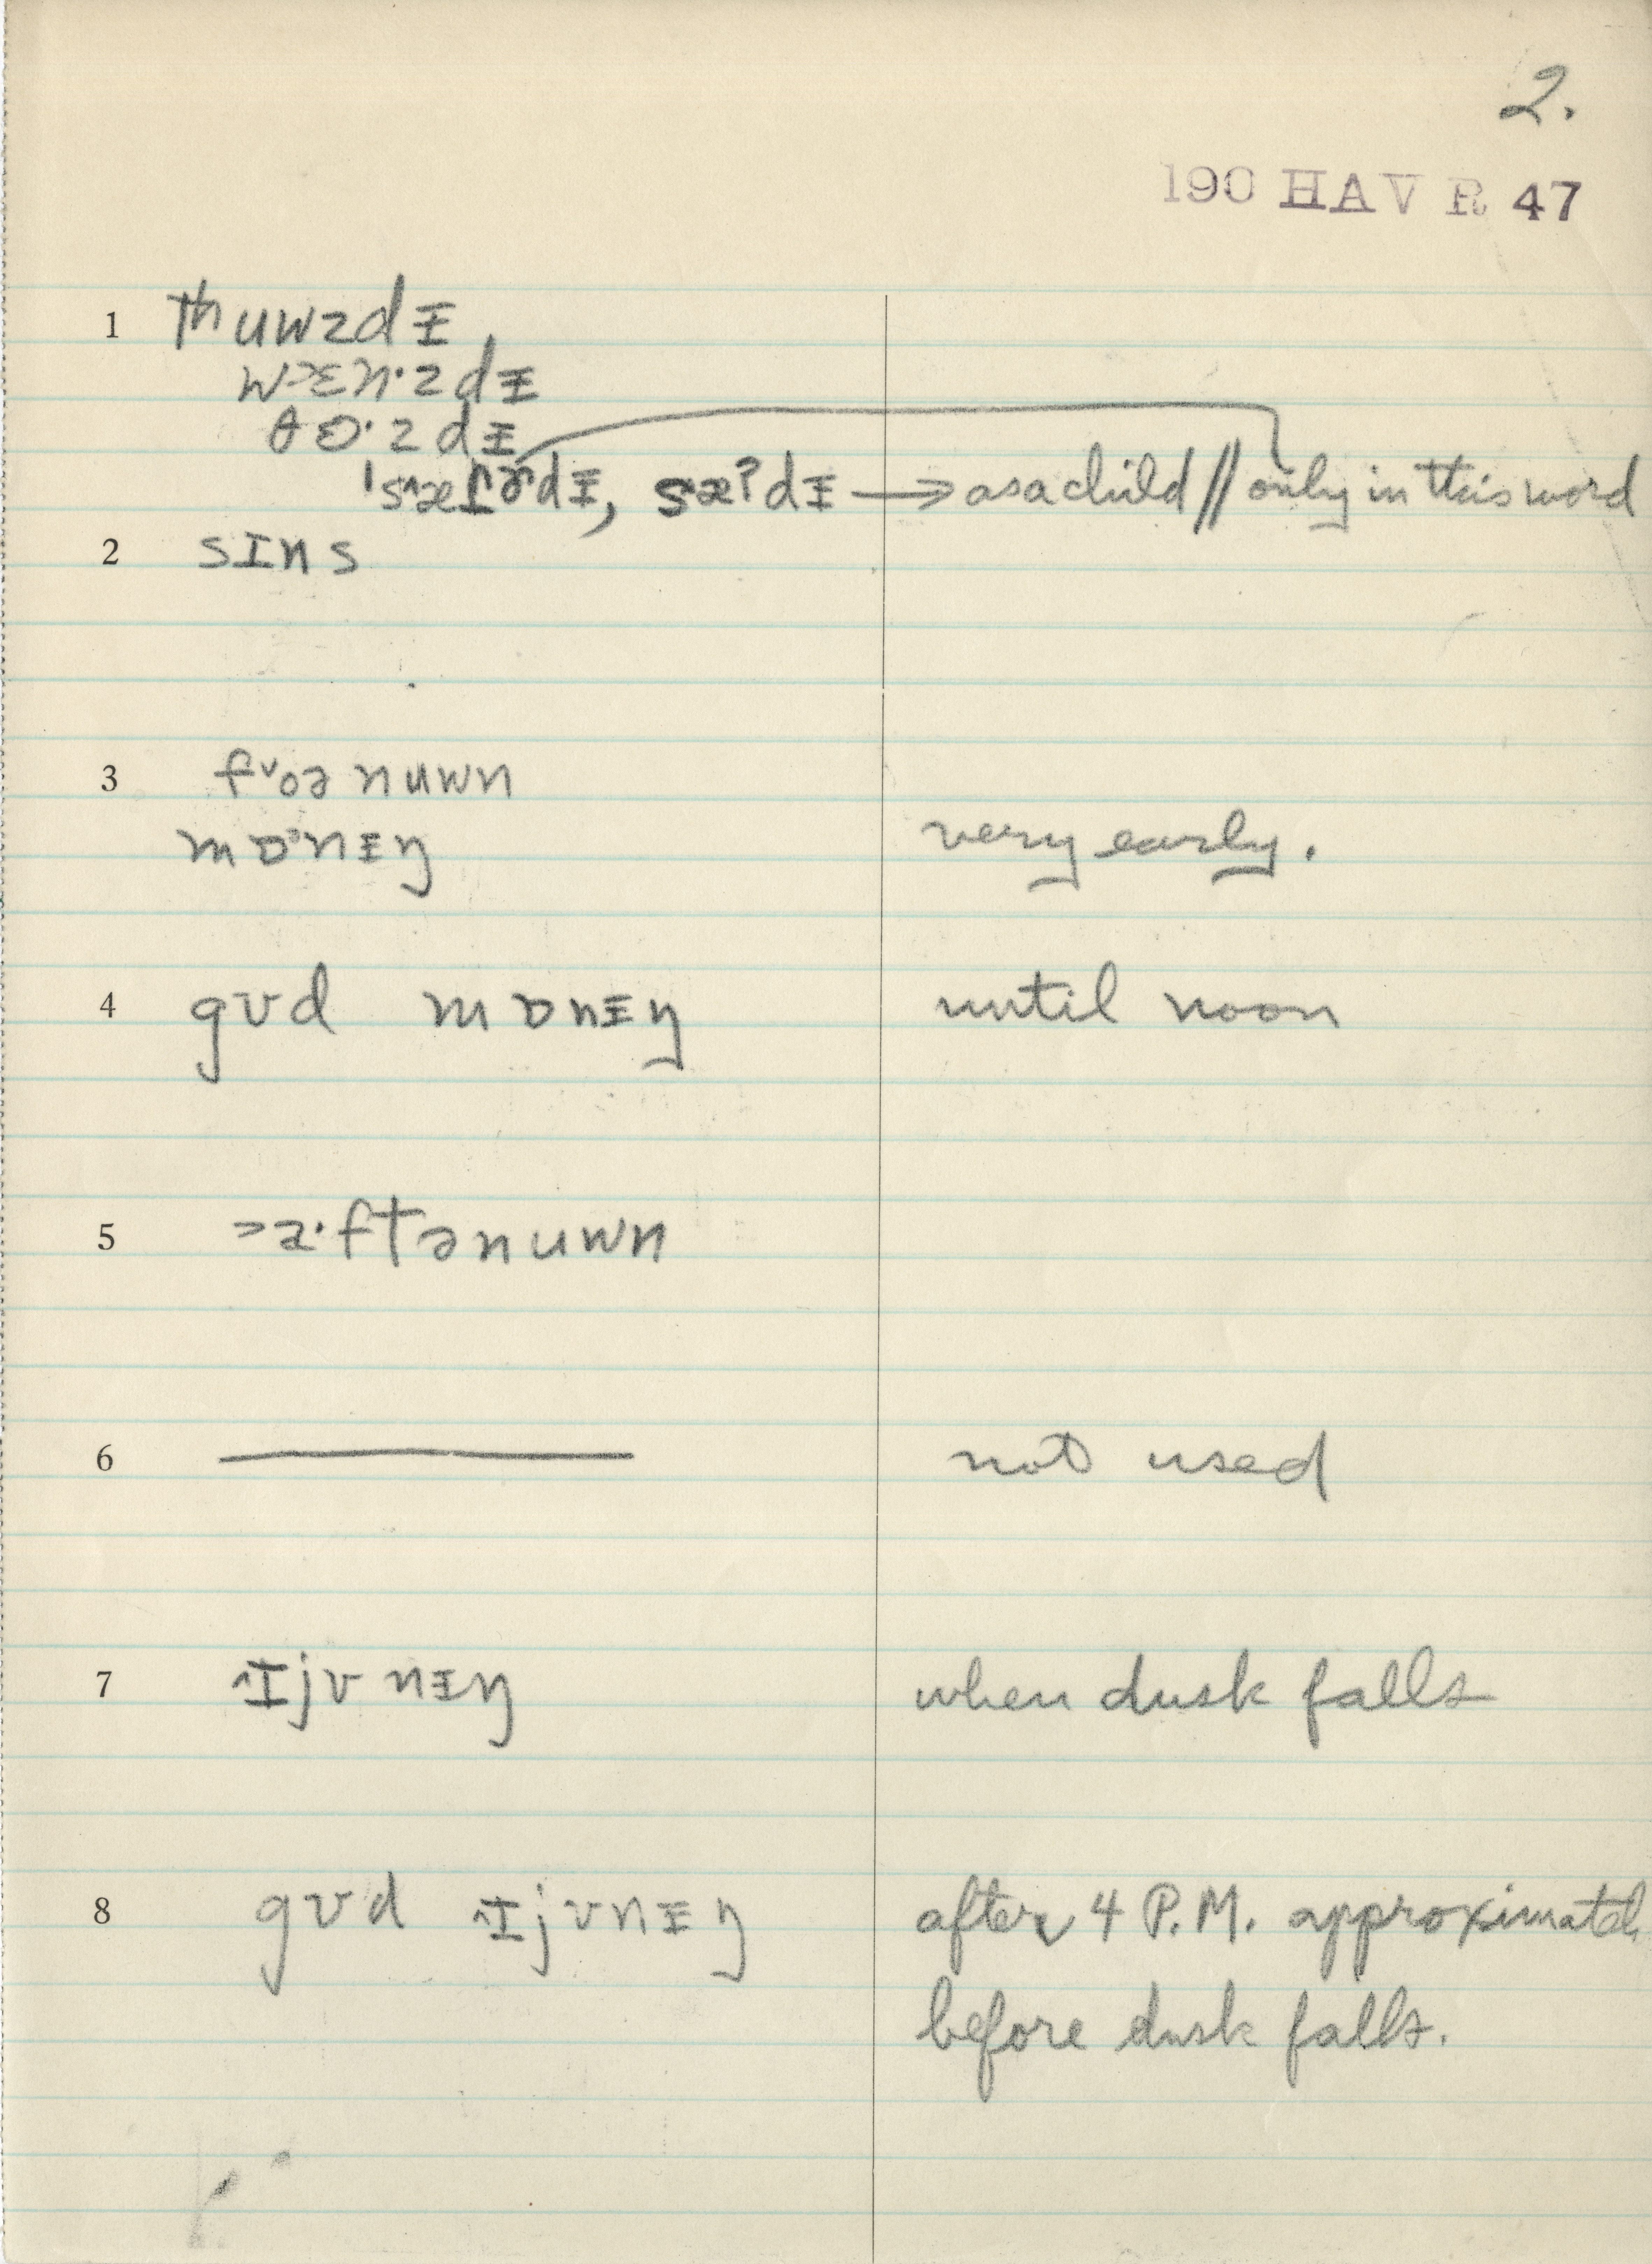 2.
190 HAV R 47
1 thuwzdᵻ
w˃ɛn·zdᵻ
θɵ·zdᵻ
ˈs˄æɾɚdᵻ, sæˀdᵻ → as a child // only in this word
2 sɪns
3 f˅oə nuwn
mɒ˃nᵻŋ very early.
4 gʊd mɒnᵻŋ until noon
5 ˃a·ftənuwn
6 —— not used
7 ˄ɪjvnᵻŋ when dusk falls
8 gʊd ˄ɪjvnᵻŋ after 4 P.M. approximatel
before dusk falls.